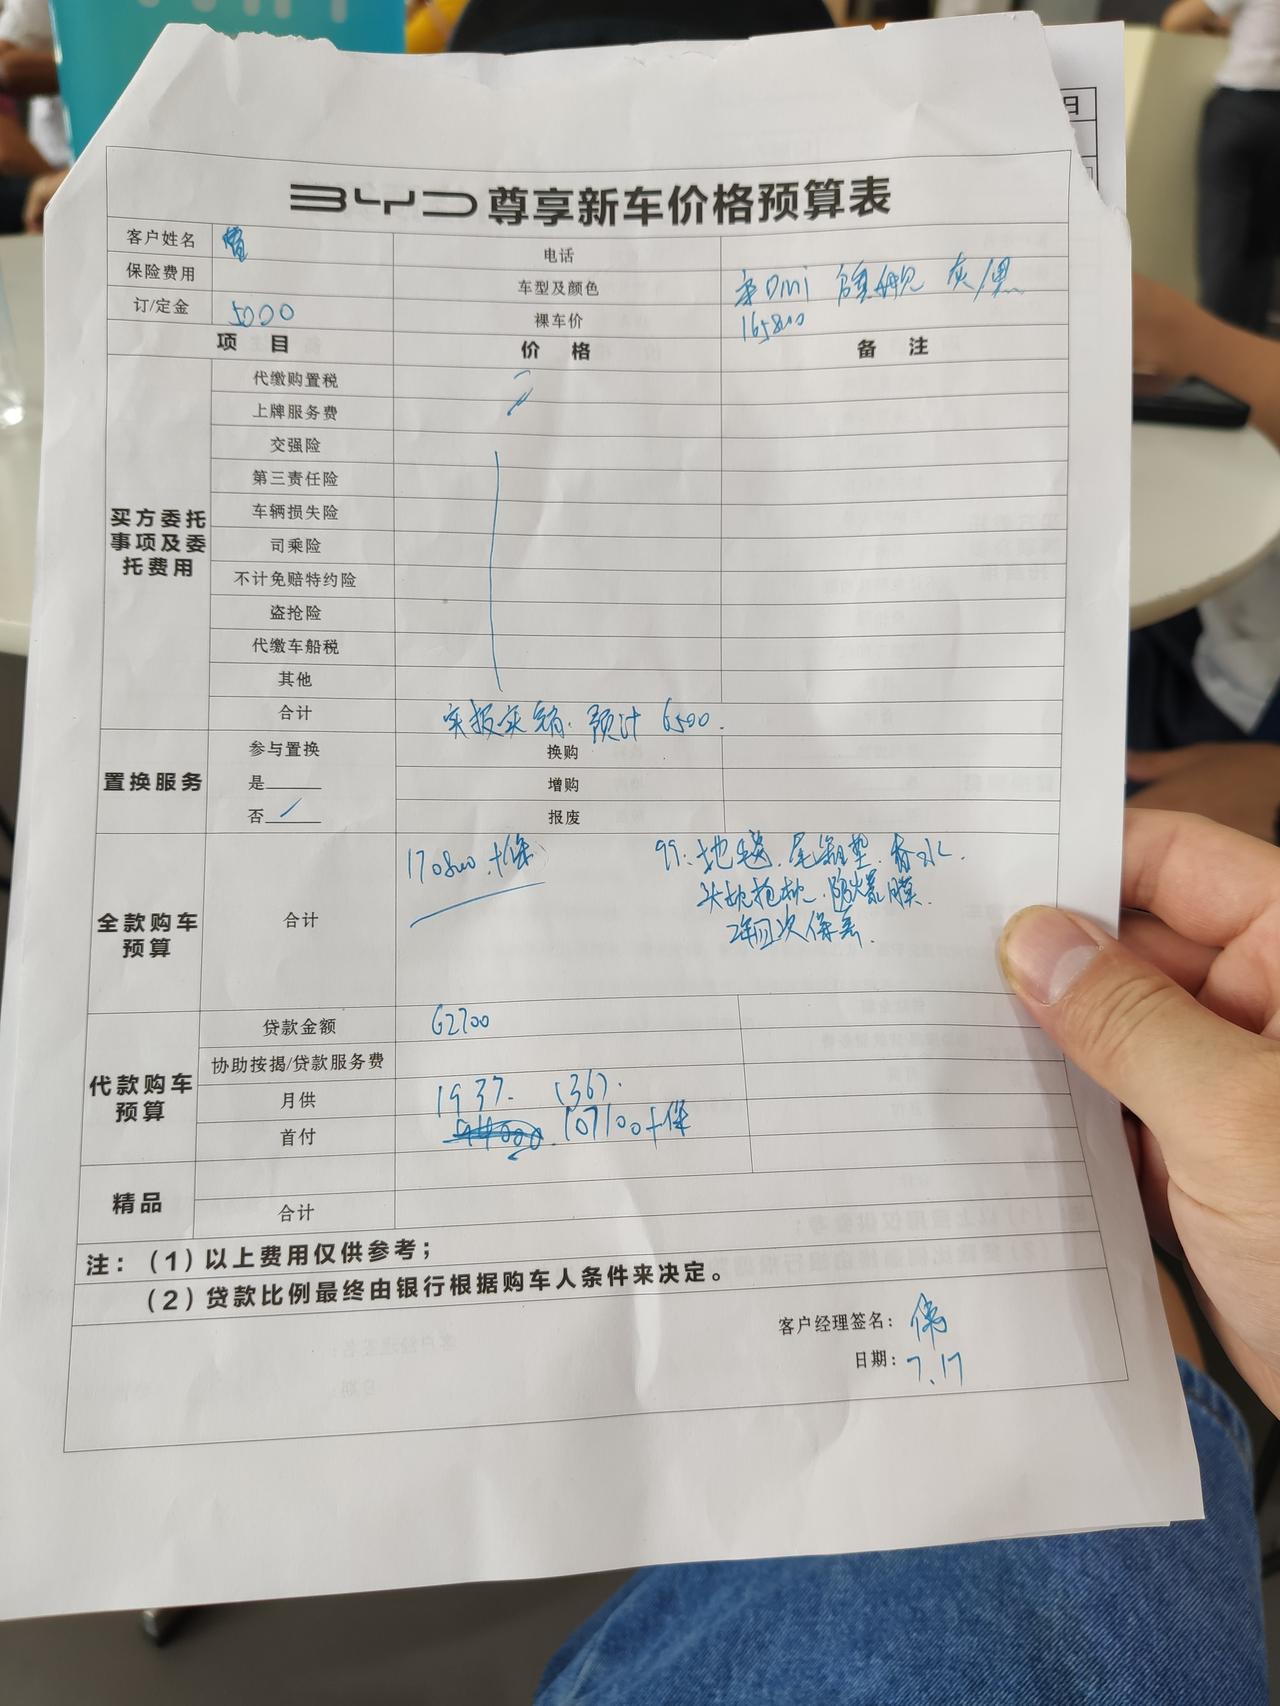 BYD尊享新车价格预算表
客户姓名 曾 电话
保险费用 车型及颜色 宋DMi 旗舰 灰/黑
订/定金 5000 裸车价 165800
项目 价格 备注
买方委托事项及委托费用
代缴购置税
上牌服务费
交强险
第三责任险
车辆损失险
司乘险
不计免赔特约险
盗抢险
代缴车船税
其他
合计 实报实销. 预计 6500.
置换服务
参与置换 换购
是 增购
否 报废
全款购车预算
合计 170800.+保 99:地毯.尾箱垫.香水.
头枕抱枕.防爆膜.
2年四次保养.
代款购车预算
贷款金额 62700
协助按揭/贷款服务费
月供 1937. (36).
首付 107100+保
精品
合计
注:(1)以上费用仅供参考;
(2)贷款比例最终由银行根据购车人条件来决定。
客户经理签名: 伟
日期: 7.17
日